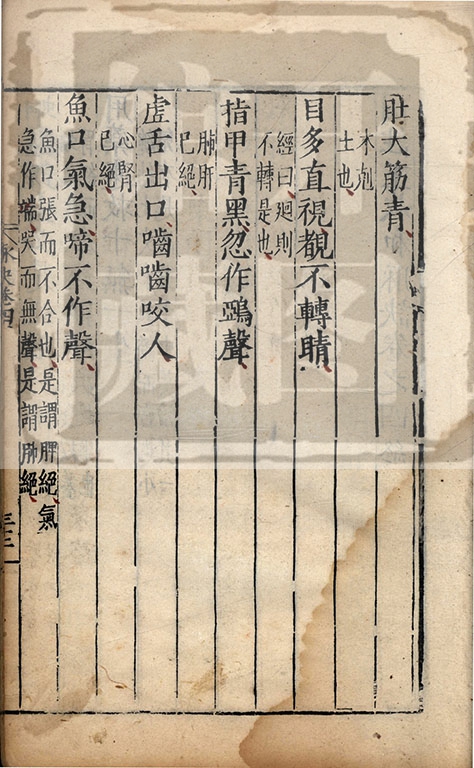 肚大筋青
木剋
土也
目多直視覩不轉睛
經曰廻則
不轉是也
指甲青黑忽作鵶聲
肺肝
已絕
虛舌出口嚙齒咬人
心腎
已絕
魚口氣急啼不作聲
魚口張而不合也是謂脾絕氣
急作喘哭而無聲是謂肺絕
訣卷四
三十一